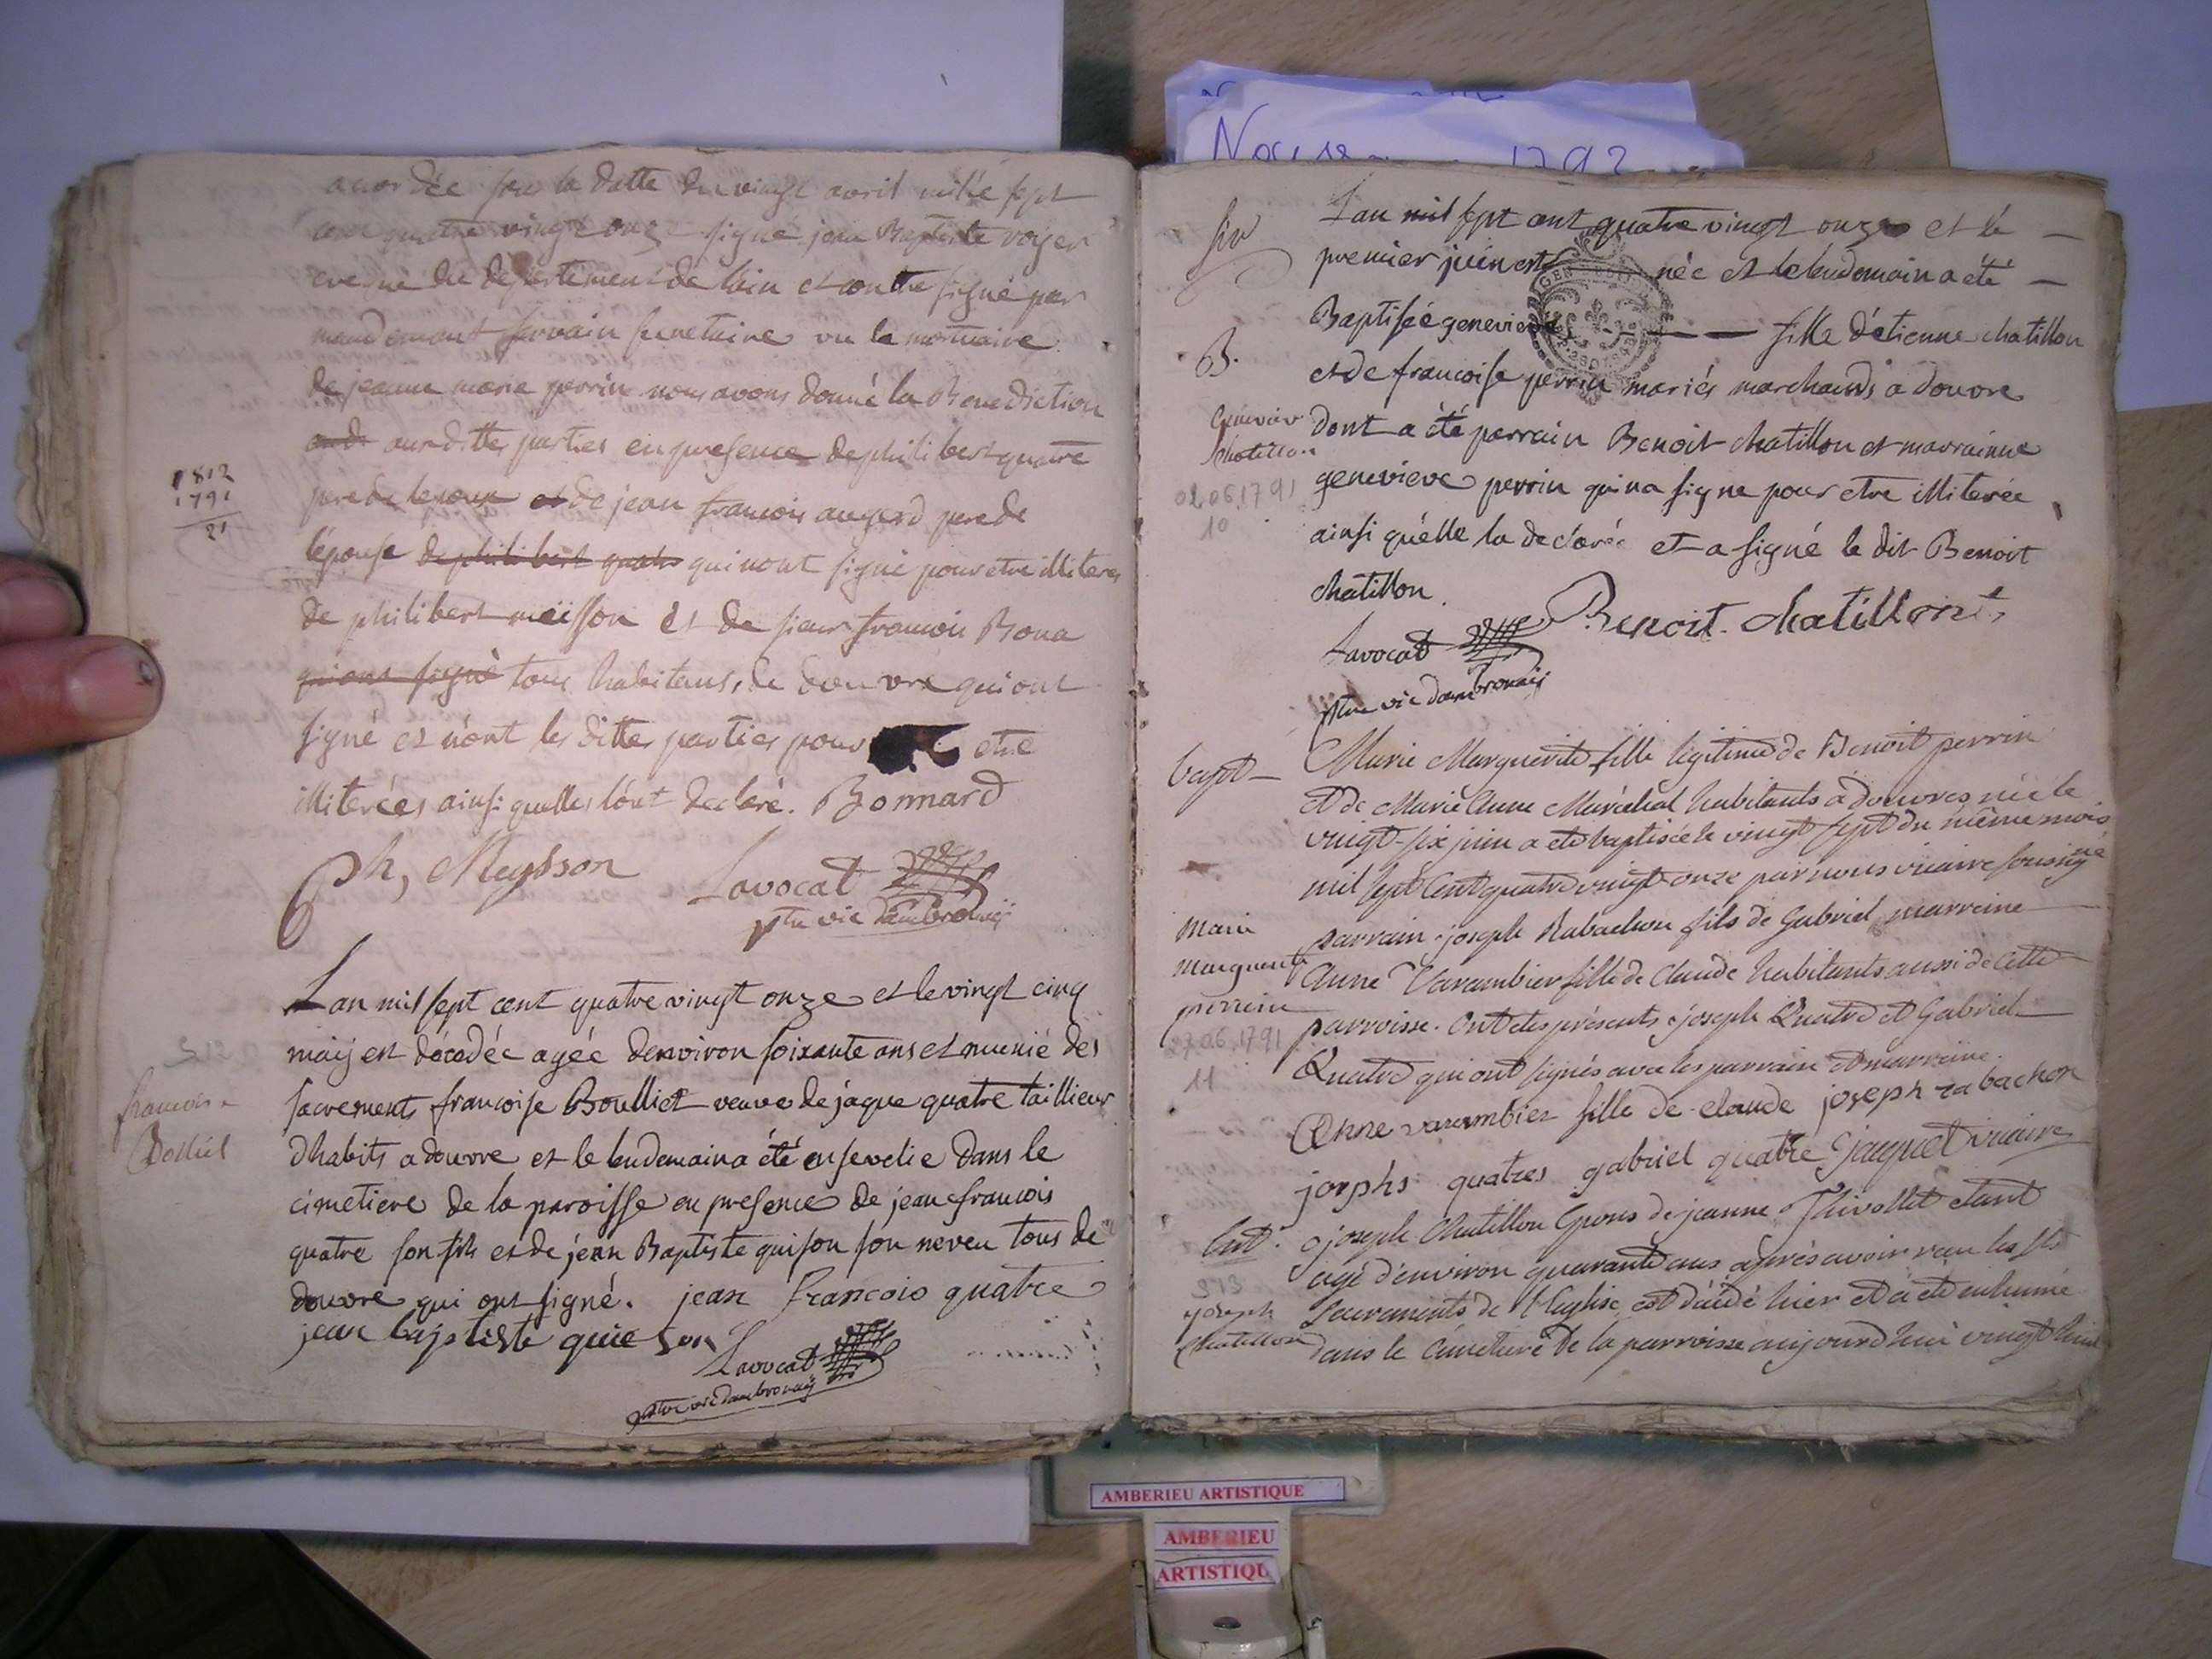 accordée sous la datte du vingt avril mille sept
cent quatre vingt onze signé jean Baptiste royer
eveque du departement de lain et contre signé par
mandement secretaire vu le
de jeanne marie perrin nous avons donné la Benediction
aux ditte parties en presence de philibert quatre
pere de lepoux et de jean francois augerd pere de
lépouse de philibert quatre qui nont signé pour etre illiteres
de philibert meisson et de sieur francois Bona
qui ont signé tous habitans de douvre qui ont
signé et nónt les ditte parties pour etre
illiterées ainsi quelles lónt declaré. Bonnard
Ph, Meysson Lavocat
ptre vic dambronaÿ
1812
1791
21
Lan mil sept cent quatre vingt onze et le vingt cinq
maij est décedée agée denviron soixante ans et munié des
sacrements francoise Boulliet veuve de jàque quatre taillieur
dhabits a douvre et le lendemain a été ensevelie dans le
cimetiere de la paroisse en presence de jean francois
quatre son fils et de jean Baptiste quison son neveu tous de
douvre qui ont signé. jean francois quatre
jean baptiste quieson
Lavocat
ptre vic dambronaÿ
francoise
Bolliet
Nov 1792
Lan mil sept cent quatre vingt onze et le
premier juin est née et le lendemain a été
Baptisée genevieve fille détienne chatillon
et de francoise perrin mariés marchands a douvre
dont a été parrain Benoit chatillon et marrainne
genevieve perrin qui na signe pour etre illiterée
ainsi quélle la declarée et a signé le dit Benoit
chatillon.
Benoit chatillont
Lavocat
ptre vic dambronaij
B.
Genevieve
chatillon
02.06.1791
10
bapt
Marie Marguerite fille legitime de Benoit perrin
et de Marie Anne Maréchal habitants a douvres née le
vingt-six juin a eté baptisée le vingt sept du même mois
mil sept cent quatre vingt onze par nous vicaire soussigné
parrain joseph Rabachon fils de Gabriel marreine
Anne Varambier fille de Claude habitants aussi de cette
parroisse. Ont etes présents joseph Quatre et Gabriel
Quatre qui ont signés avec les parrain et marreine.
Anne varambier fille de claude joseph rabachon
josephs quatres gabriel quatre Jacquet vicaire
Marie
Marguerite
perrin
27.06.1791
11
joseph Chatillon Epoux de jeanne Thivollet etant
agé d'environ quarante ans après avoir recu les sts
Sacrements de l'Eglise est décédé hier et a eté inhumé
dans le cimetiere de la parroisse aujourd'hui vingt huit
Ent.
313
joseph
Chatillon
AMBERIEU ARTISTIQUE
AMBERIEU
ARTISTIQU